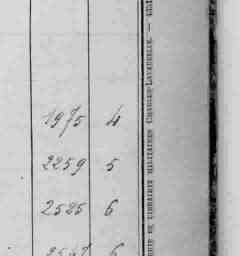 1975 4
2259 5
2525 6
2547 6
ERIE ET LIBRAIRIE MILITAIRES CHARLES-LAVAUZELLE. —